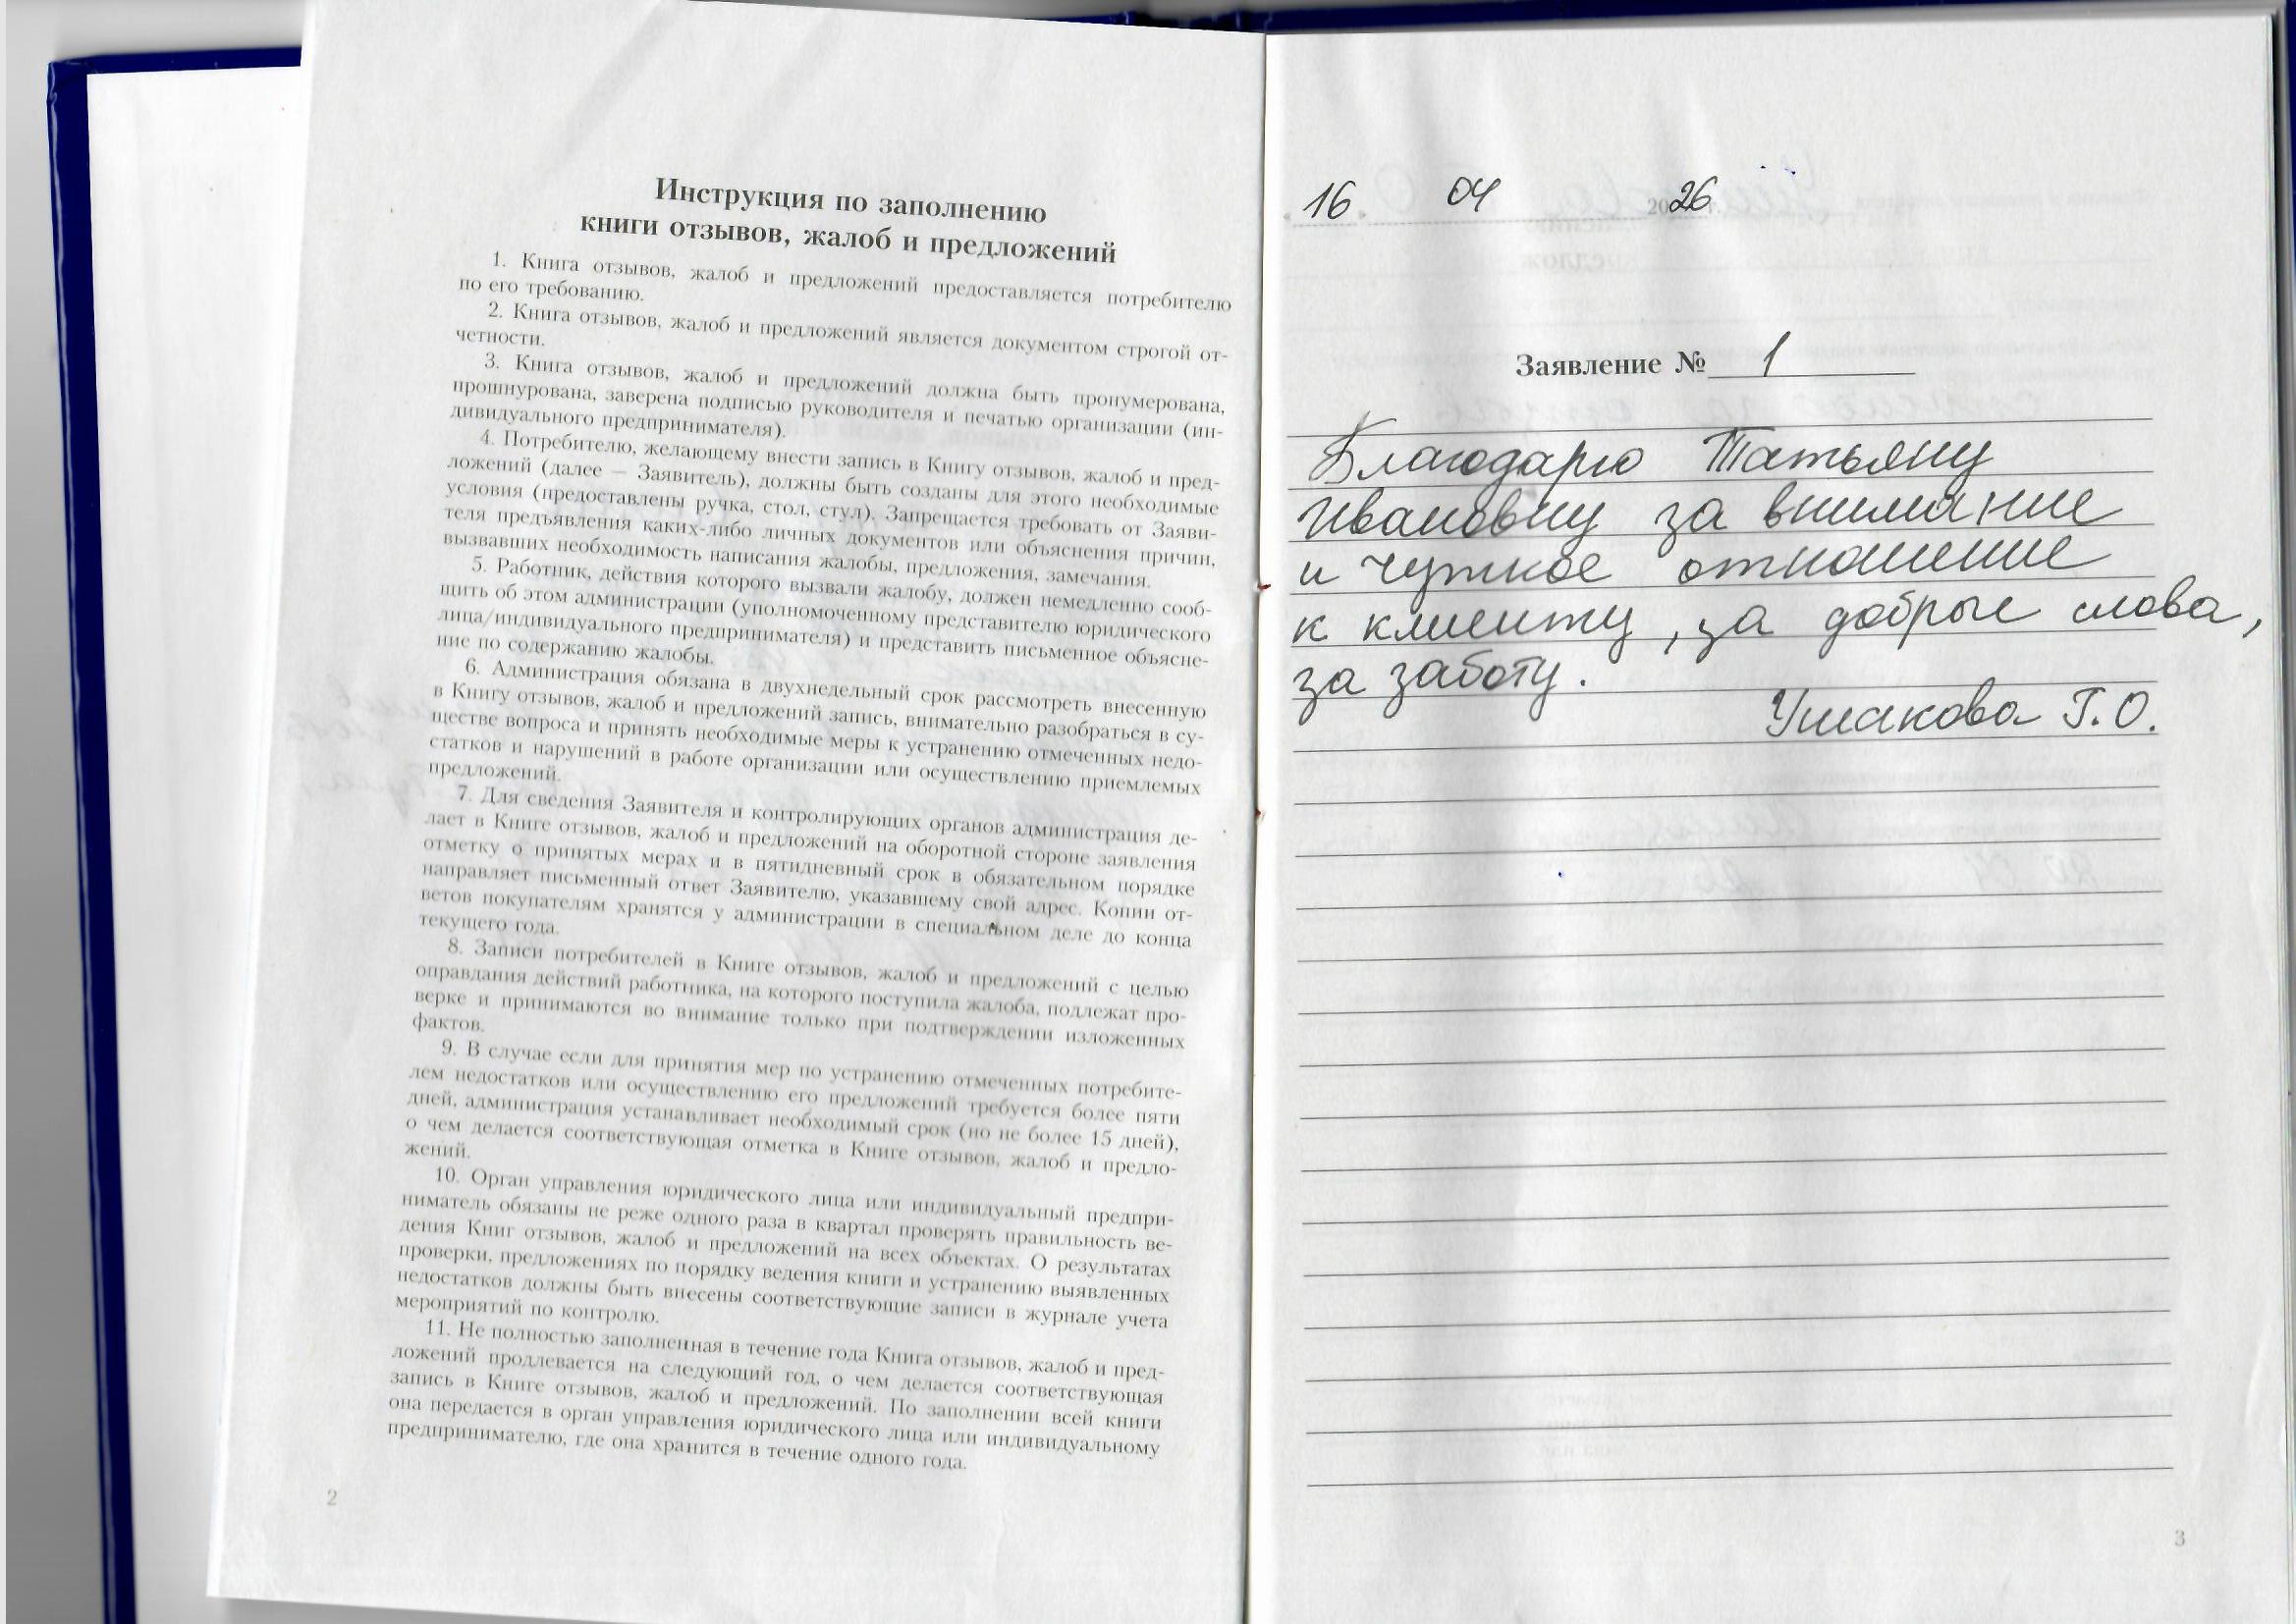 Инструкция по заполнению
книги отзывов, жалоб и предложений
1. Книга отзывов, жалоб и предложений предоставляется потребителю
по его требованию.
2. Книга отзывов, жалоб и предложений является документом строгой от-
четности.
3. Книга отзывов, жалоб и предложений должна быть пронумерована,
прошнурована, заверена подписью руководителя и печатью организации (ин-
дивидуального предпринимателя).
4. Потребителю, желающему внести запись в Книгу отзывов, жалоб и пред-
ложений (далее — Заявитель), должны быть созданы для этого необходимые
условия (предоставлены ручка, стол, стул). Запрещается требовать от Заяви-
теля предъявления каких-либо личных документов или объяснения причин,
вызвавших необходимость написания жалобы, предложения, замечания.
5. Работник, действия которого вызвали жалобу, должен немедленно сооб-
щить об этом администрации (уполномоченному представителю юридического
лица/индивидуального предпринимателя) и представить письменное объясне-
ние по содержанию жалобы.
6. Администрация обязана в двухнедельный срок рассмотреть внесенную
в Книгу отзывов, жалоб и предложений запись, внимательно разобраться в су-
ществе вопроса и принять необходимые меры к устранению отмеченных недо-
статков и нарушений в работе организации или осуществлению приемлемых
предложений.
7. Для сведения Заявителя и контролирующих органов администрация де-
лает в Книге отзывов, жалоб и предложений на оборотной стороне заявления
отметку о принятых мерах и в пятидневный срок в обязательном порядке
направляет письменный ответ Заявителю, указавшему свой адрес. Копии от-
ветов покупателям хранятся у администрации в специальном деле до конца
текущего года.
8. Записи потребителей в Книге отзывов, жалоб и предложений с целью
оправдания действий работника, на которого поступила жалоба, подлежат про-
верке и принимаются во внимание только при подтверждении изложенных
фактов.
9. В случае если для принятия мер по устранению отмеченных потребите-
лем недостатков или осуществлению его предложений требуется более пяти
дней, администрация устанавливает необходимый срок (но не более 15 дней),
о чем делается соответствующая отметка в Книге отзывов, жалоб и предло-
жений.
10. Орган управления юридического лица или индивидуальный предпри-
ниматель обязаны не реже одного раза в квартал проверять правильность ве-
дения Книг отзывов, жалоб и предложений на всех объектах. О результатах
проверки, предложениях по порядку ведения книги и устранению выявленных
недостатков должны быть внесены соответствующие записи в журнале учета
мероприятий по контролю.
11. Не полностью заполненная в течение года Книга отзывов, жалоб и пред-
ложений продлевается на следующий год, о чем делается соответствующая
запись в Книге отзывов, жалоб и предложений. По заполнении всей книги
она передается в орган управления юридического лица или индивидуальному
предпринимателю, где она хранится в течение одного года.
2
16. 04 2026 г.
Заявление № 1
Благодарю Татьяну
Ивановну за внимание
и чуткое отношение
к клиенту, за добрые слова,
за заботу.
Ушакова Г.О.
3